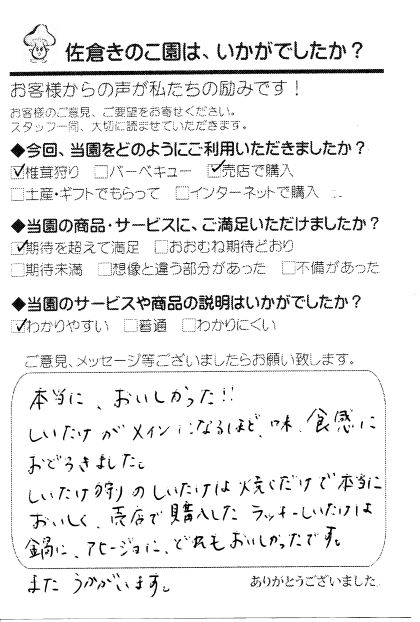 佐倉きのこ園は、いかがでしたか？
お客様からの声が私たちの励みです！
お客様のご意見、ご要望をお寄せください。
スタッフ一同、大切に読ませていただきます。
◆今回、当園をどのようにご利用いただきましたか？
☑椎茸狩り □バーベキュー ☑売店で購入
□土産・ギフトでもらって □インターネットで購入
◆当園の商品・サービスに、ご満足いただけましたか？
☑期待を超えて満足 □おおむね期待どおり
□期待未満 □想像と違う部分があった □不備があった
◆当園のサービスや商品の説明はいかがでしたか？
☑わかりやすい □普通 □わかりにくい
ご意見、メッセージ等ございましたらお願い致します。
本当に、おいしかった!!
しいたけがメインになるほど、味、食感に
おどろきました。
しいたけ狩りのしいたけは焼くだけで本当に
おいしく、売店で購入したラッキーしいたけは
鍋に、アヒージョに、どれもおいしかったです。
また うかがいます。
ありがとうございました